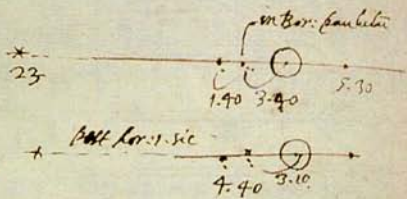 in Bor: paululu
23
1.40 3.40 5.30
Post hor: 1. sic
4.40 3.10